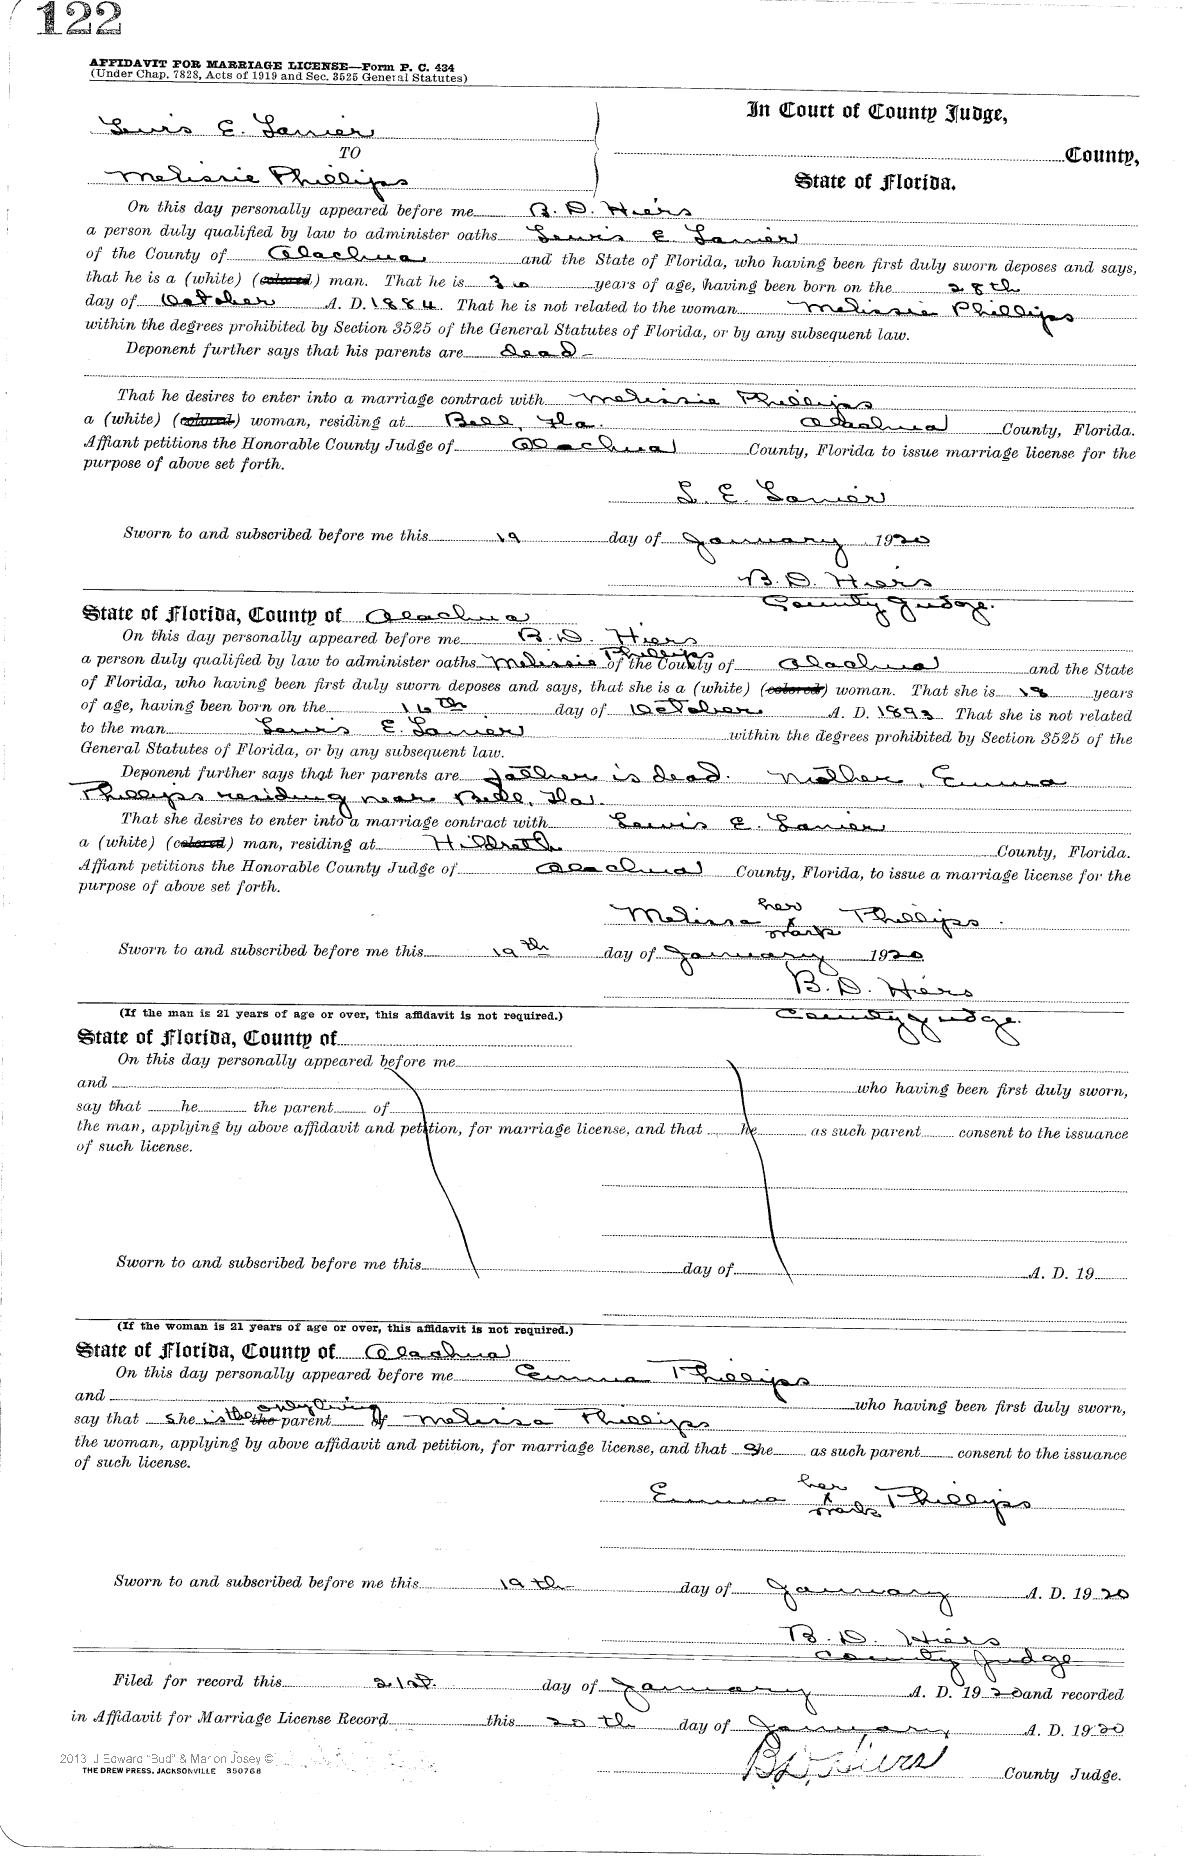 122
AFFIDAVIT FOR MARRIAGE LICENSE—Form P. C. 434
(Under Chap. 7828, Acts of 1919 and Sec. 3525 General Statutes)
In Court of County Judge,
Lewis E. Lanier
TO
County,
Melissie Phillips
State of Florida.
On this day personally appeared before me B. D. Hiers
a person duly qualified by law to administer oaths Lewis E. Lanier
of the County of Alachua and the State of Florida, who having been first duly sworn deposes and says,
that he is a (white) (colored) man. That he is 36 years of age, having been born on the 28th
day of October A. D. 1884. That he is not related to the woman Melissie Phillips
within the degrees prohibited by Section 3525 of the General Statutes of Florida, or by any subsequent law.
Deponent further says that his parents are dead—
That he desires to enter into a marriage contract with Melissie Phillips
a (white) (colored) woman, residing at Bell, Fla. Alachua County, Florida.
Affiant petitions the Honorable County Judge of Alachua County, Florida to issue marriage license for the
purpose of above set forth.
L. E. Lanier
Sworn to and subscribed before me this 19 day of January 1920
B. D. Hiers
County Judge.
State of Florida, County of Alachua
On this day personally appeared before me B. D. Hiers
a person duly qualified by law to administer oaths Melissie Phillips of the County of Alachua and the State
of Florida, who having been first duly sworn deposes and says, that she is a (white) (colored) woman. That she is 18 years
of age, having been born on the 16th day of October A. D. 1893 That she is not related
to the man Lewis E. Lanier within the degrees prohibited by Section 3525 of the
General Statutes of Florida, or by any subsequent law.
Deponent further says that her parents are father is dead. Mother, Emma
Phillips residing near Bell, Fla.
That she desires to enter into a marriage contract with Lewis E. Lanier
a (white) (colored) man, residing at Hildreth County, Florida.
Affiant petitions the Honorable County Judge of Alachua County, Florida, to issue a marriage license for the
purpose of above set forth.
Melissa her x mark Phillips
Sworn to and subscribed before me this 19th day of January 1920
B. D. Hiers
County Judge.
(If the man is 21 years of age or over, this affidavit is not required.)
State of Florida, County of
On this day personally appeared before me
and who having been first duly sworn,
say that he the parent of
the man, applying by above affidavit and petition, for marriage license, and that he as such parent consent to the issuance
of such license.
Sworn to and subscribed before me this day of A. D. 19
(If the woman is 21 years of age or over, this affidavit is not required.)
State of Florida, County of Alachua
On this day personally appeared before me Emma Phillips
and who having been first duly sworn,
say that she is the only living the parent of Melissa Phillips
the woman, applying by above affidavit and petition, for marriage license, and that She as such parent consent to the issuance
of such license.
Emma her x mark Phillips
Sworn to and subscribed before me this 19th day of January A. D. 1920
B. D. Hiers
County Judge
Filed for record this 21st. day of January A. D. 1920 and recorded
in Affidavit for Marriage License Record this 20th day of January A. D. 1920
B. D. Hiers County Judge.
2013 J Edward "Bud" & Marion Josey ©
THE DREW PRESS, JACKSONVILLE 350768